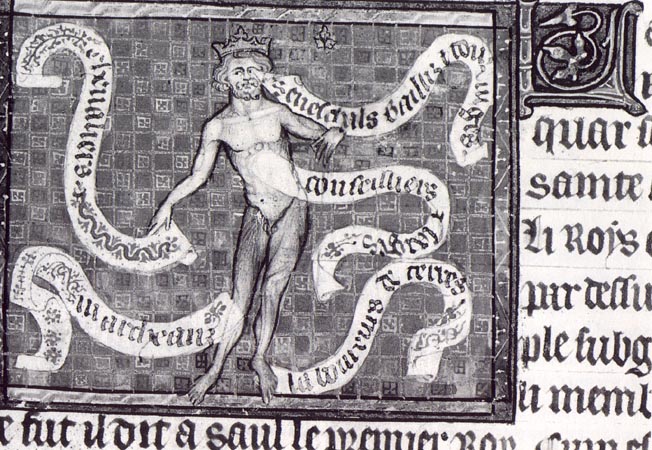 chevaliers
Seneschals baillis iuges
conseilliers
& sages
marcheanz
laboureurs de terres
quar
sainte
Li Roys
par dessu
ple subg
li memb
e fut il dit a saul le premier Roy. Cum